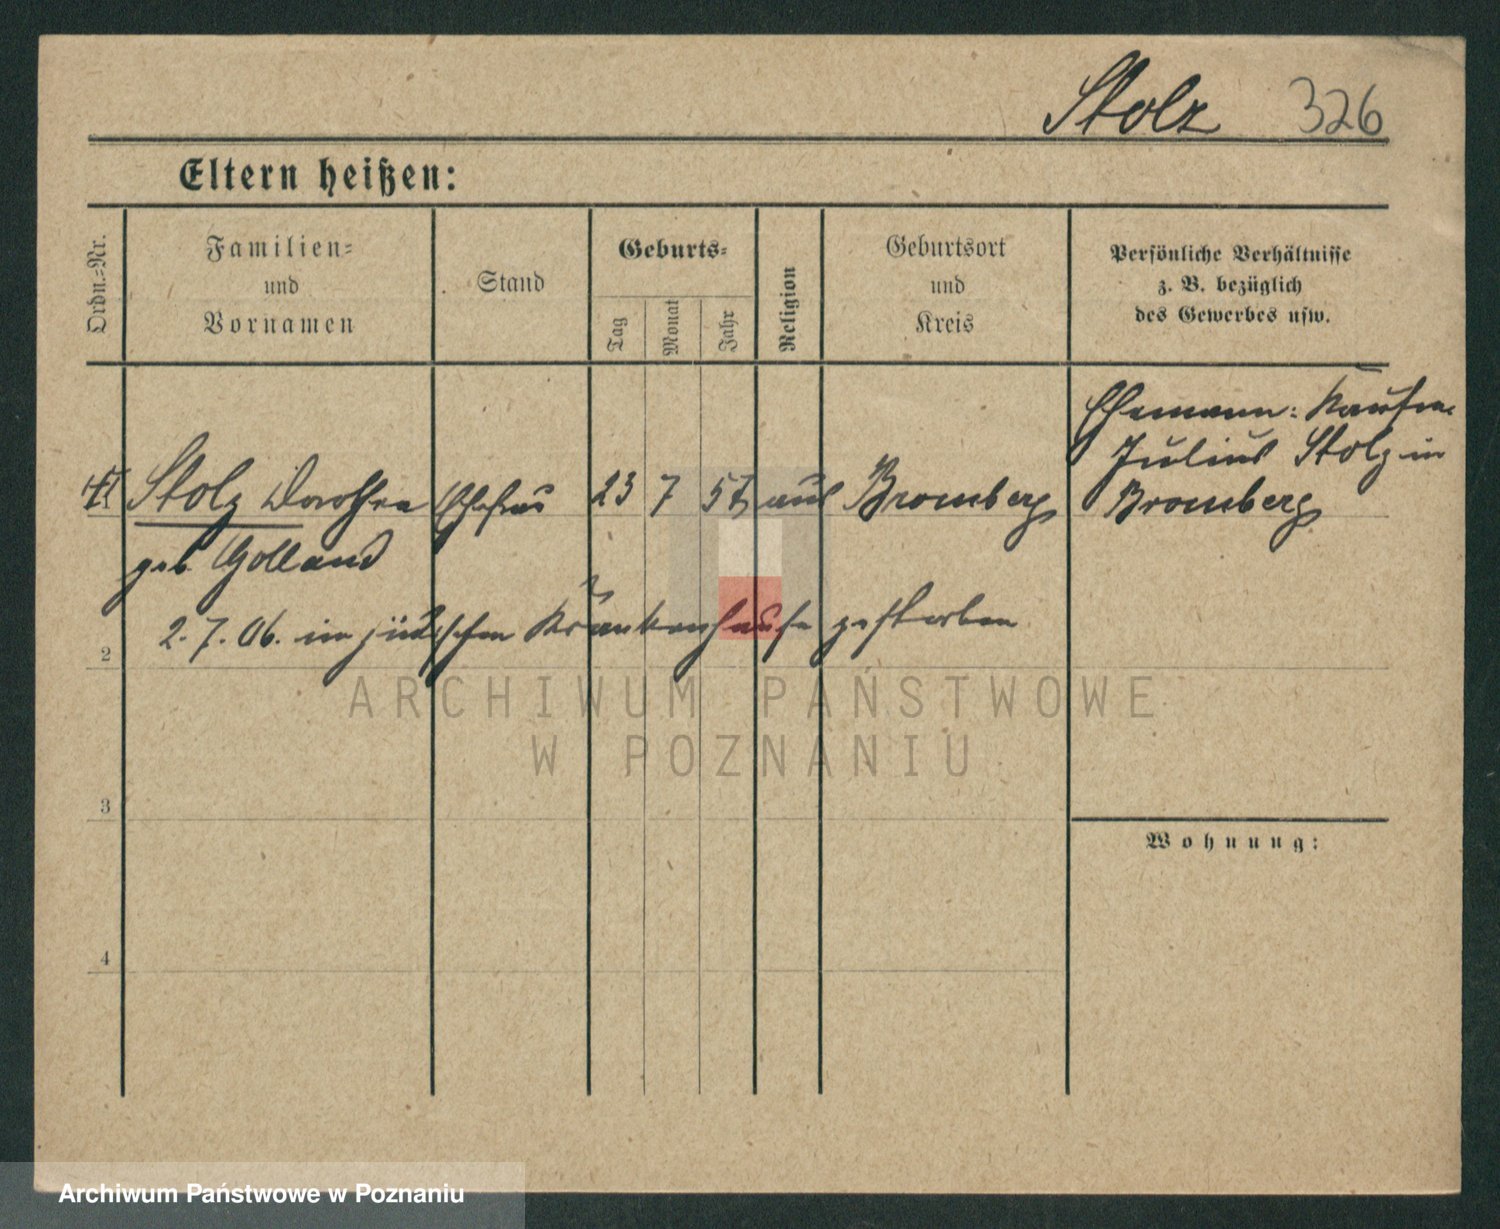 Stolz 326
Eltern heißen:
Ordn.=Nr.
Familien=
und
Vornamen
Stand
Geburts=
Tag
Monat
Jahr
Religion
Geburtsort
und
Kreis
Persönliche Verhältnisse
z. B. bezüglich
des Gewerbes usw.
Ehemann: Kaufm.
Julius Stolz in
Bromberg
Stolz Dorothea Ehefrau 23 7 aus Bromberg
geb. Golland
2. 7. 06. im jüdischen Krankenhause gestorben
2
3
4
Wohnung:
ARCHIWUM PAŃSTWOWE
W POZNANIU
Archiwum Państwowe w Poznaniu